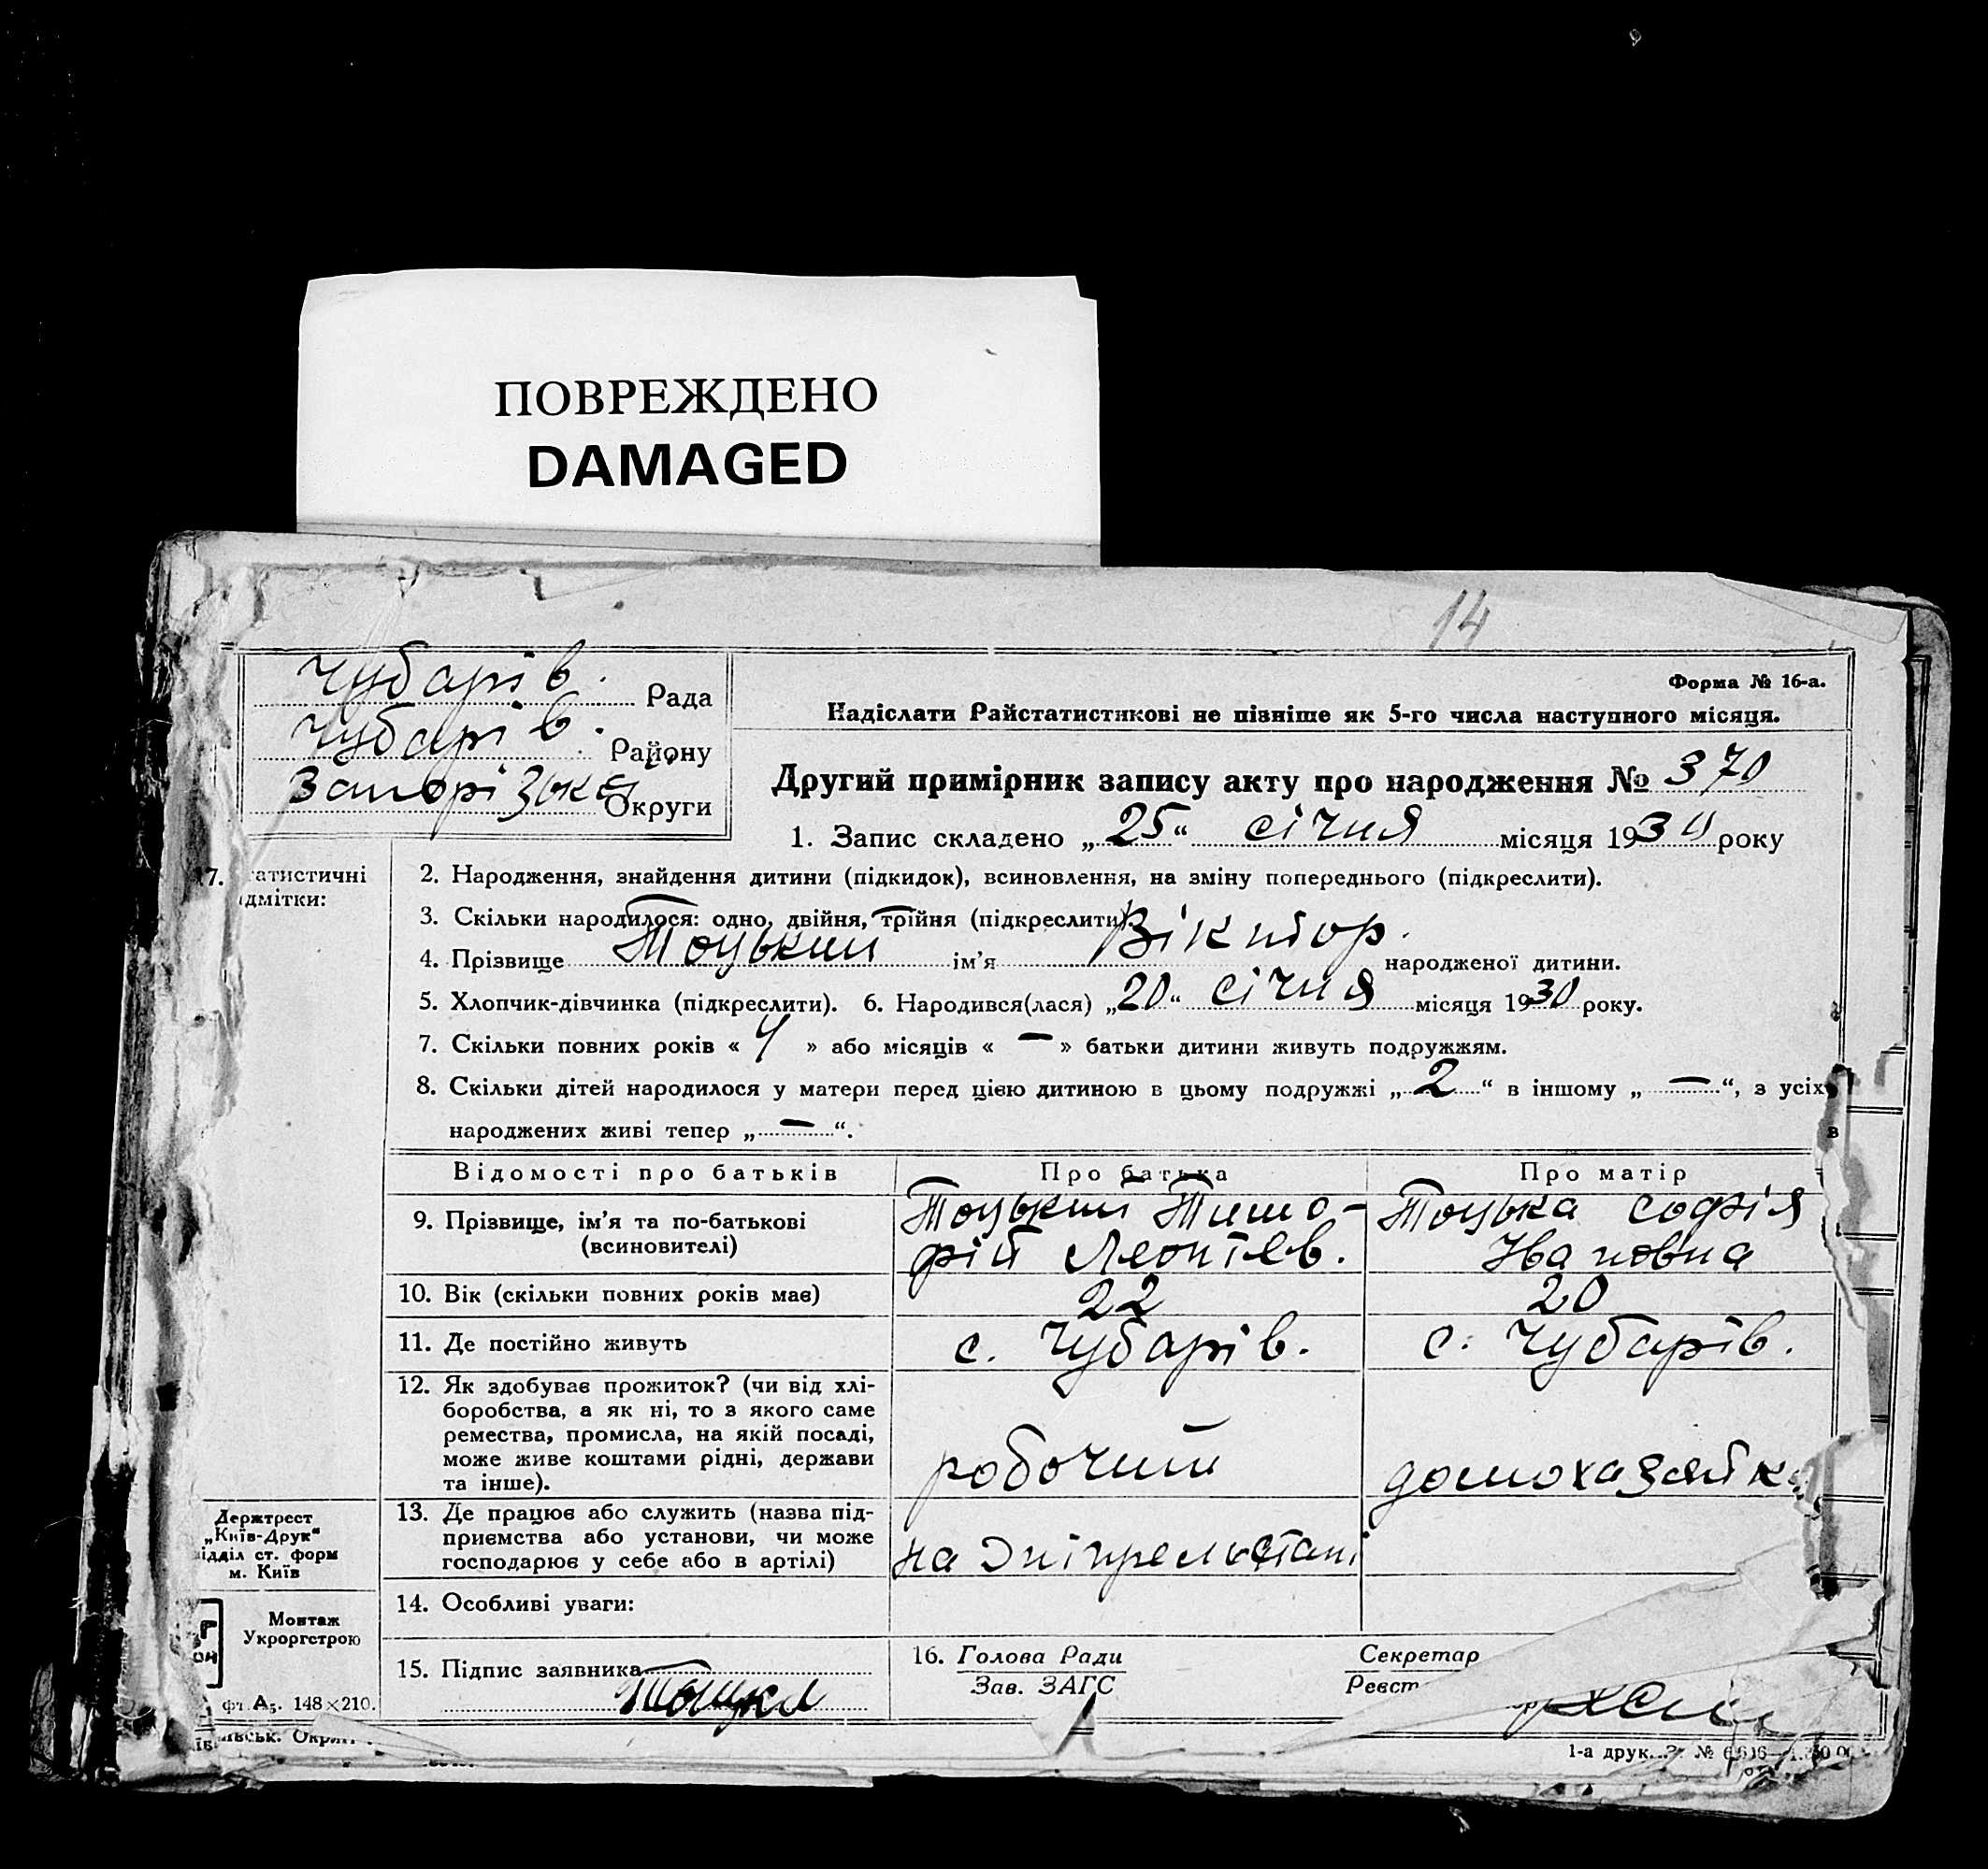 ПОВРЕЖДЕНО
DAMAGED
14
Чубарів. Рада
Чубарів. Району
Запорізької Округи
Форма № 16-а.
Надіслати Райстатистикові не пізніше як 5-го числа наступного місяця.
Другий примірник запису акту про народження № 370
1. Запис складено „25“ січня місяця 1930 року
17. татистичні
дмітки:
2. Народження, знайдення дитини (підкидок), всиновлення, на зміну попереднього (підкреслити).
3. Скільки народилося: одно, двійня, трійня (підкреслити).
4. Прізвище Тоцький ім’я Віктор. народженої дитини.
5. Хлопчик-дівчинка (підкреслити). 6. Народився(лася) „20“ січня місяця 1930 року.
7. Скільки повних років « 4 » або місяців « — » батьки дитини живуть подружжям.
8. Скільки дітей народилося у матери перед цією дитиною в цьому подружжі „2“ в іншому „—“, з усіх
народжених живі тепер „—“.
Відомості про батьків Про батька Про матір
9. Прізвище, ім’я та по-батькові (всиновителі)
Тоцький Тимо-
фій Леонтієв.
Тоцька Софія
Івановна
10. Вік (скільки повних років має) 22 20
11. Де постійно живуть с. Чубарів. с. Чубарів.
12. Як здобуває прожиток? (чи від хлі-
боробства, а як ні, то з якого саме
ремества, промисла, на якій посаді,
може живе коштами рідні, держави
та інше).
робочий домохазяйка
13. Де працює або служить (назва під-
приємства або установи, чи може
господарює у себе або в артілі)
на Дніпрельстані
14. Особливі уваги:
15. Підпис заявника
16. Голова Ради
Зав. ЗАГС
Секретар
Реєст
Держтрест
„Київ-Друк“
ідділ ст. форм
м. Київ
Монтаж
Укроргстрою
фт. А5. 148×210.
1-а друк.